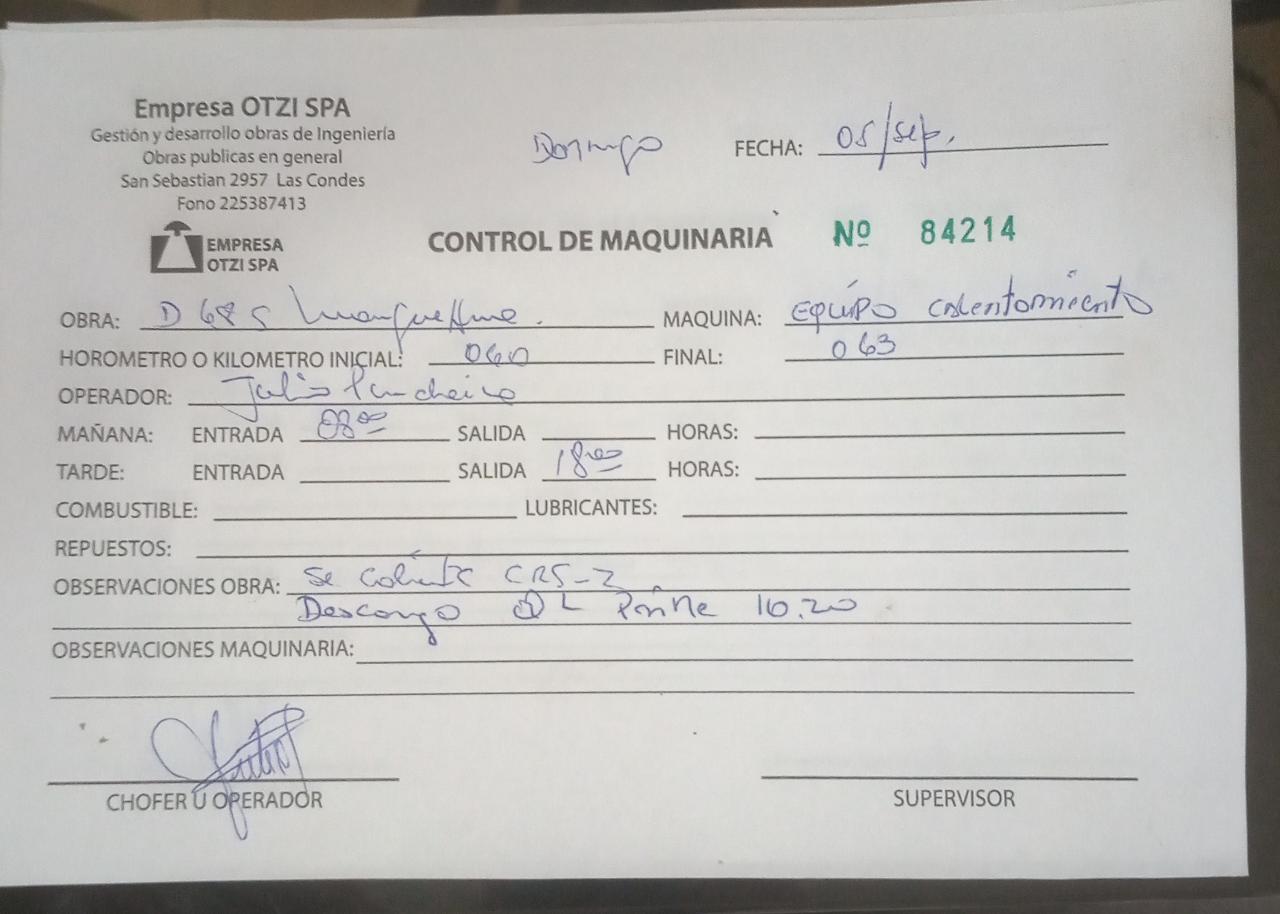 Empresa OTZI SPA
Gestión y desarrollo obras de Ingeniería
Obras publicas en general
San Sebastian 2957 Las Condes
Fono 225387413
Domingo
FECHA: 05/sep.
EMPRESA
OTZI SPA
CONTROL DE MAQUINARIA
Nº 84214
OBRA: D 685
MAQUINA: EQUIPO calentamiento
HOROMETRO O KILOMETRO INICIAL: 060 FINAL: 063
OPERADOR: Julio
MAÑANA: ENTRADA 08:00 SALIDA HORAS:
TARDE: ENTRADA SALIDA 18:00 HORAS:
COMBUSTIBLE: LUBRICANTES:
REPUESTOS:
OBSERVACIONES OBRA: Se CRS-2
Descargo 16.20
OBSERVACIONES MAQUINARIA:
CHOFER U OPERADOR
SUPERVISOR